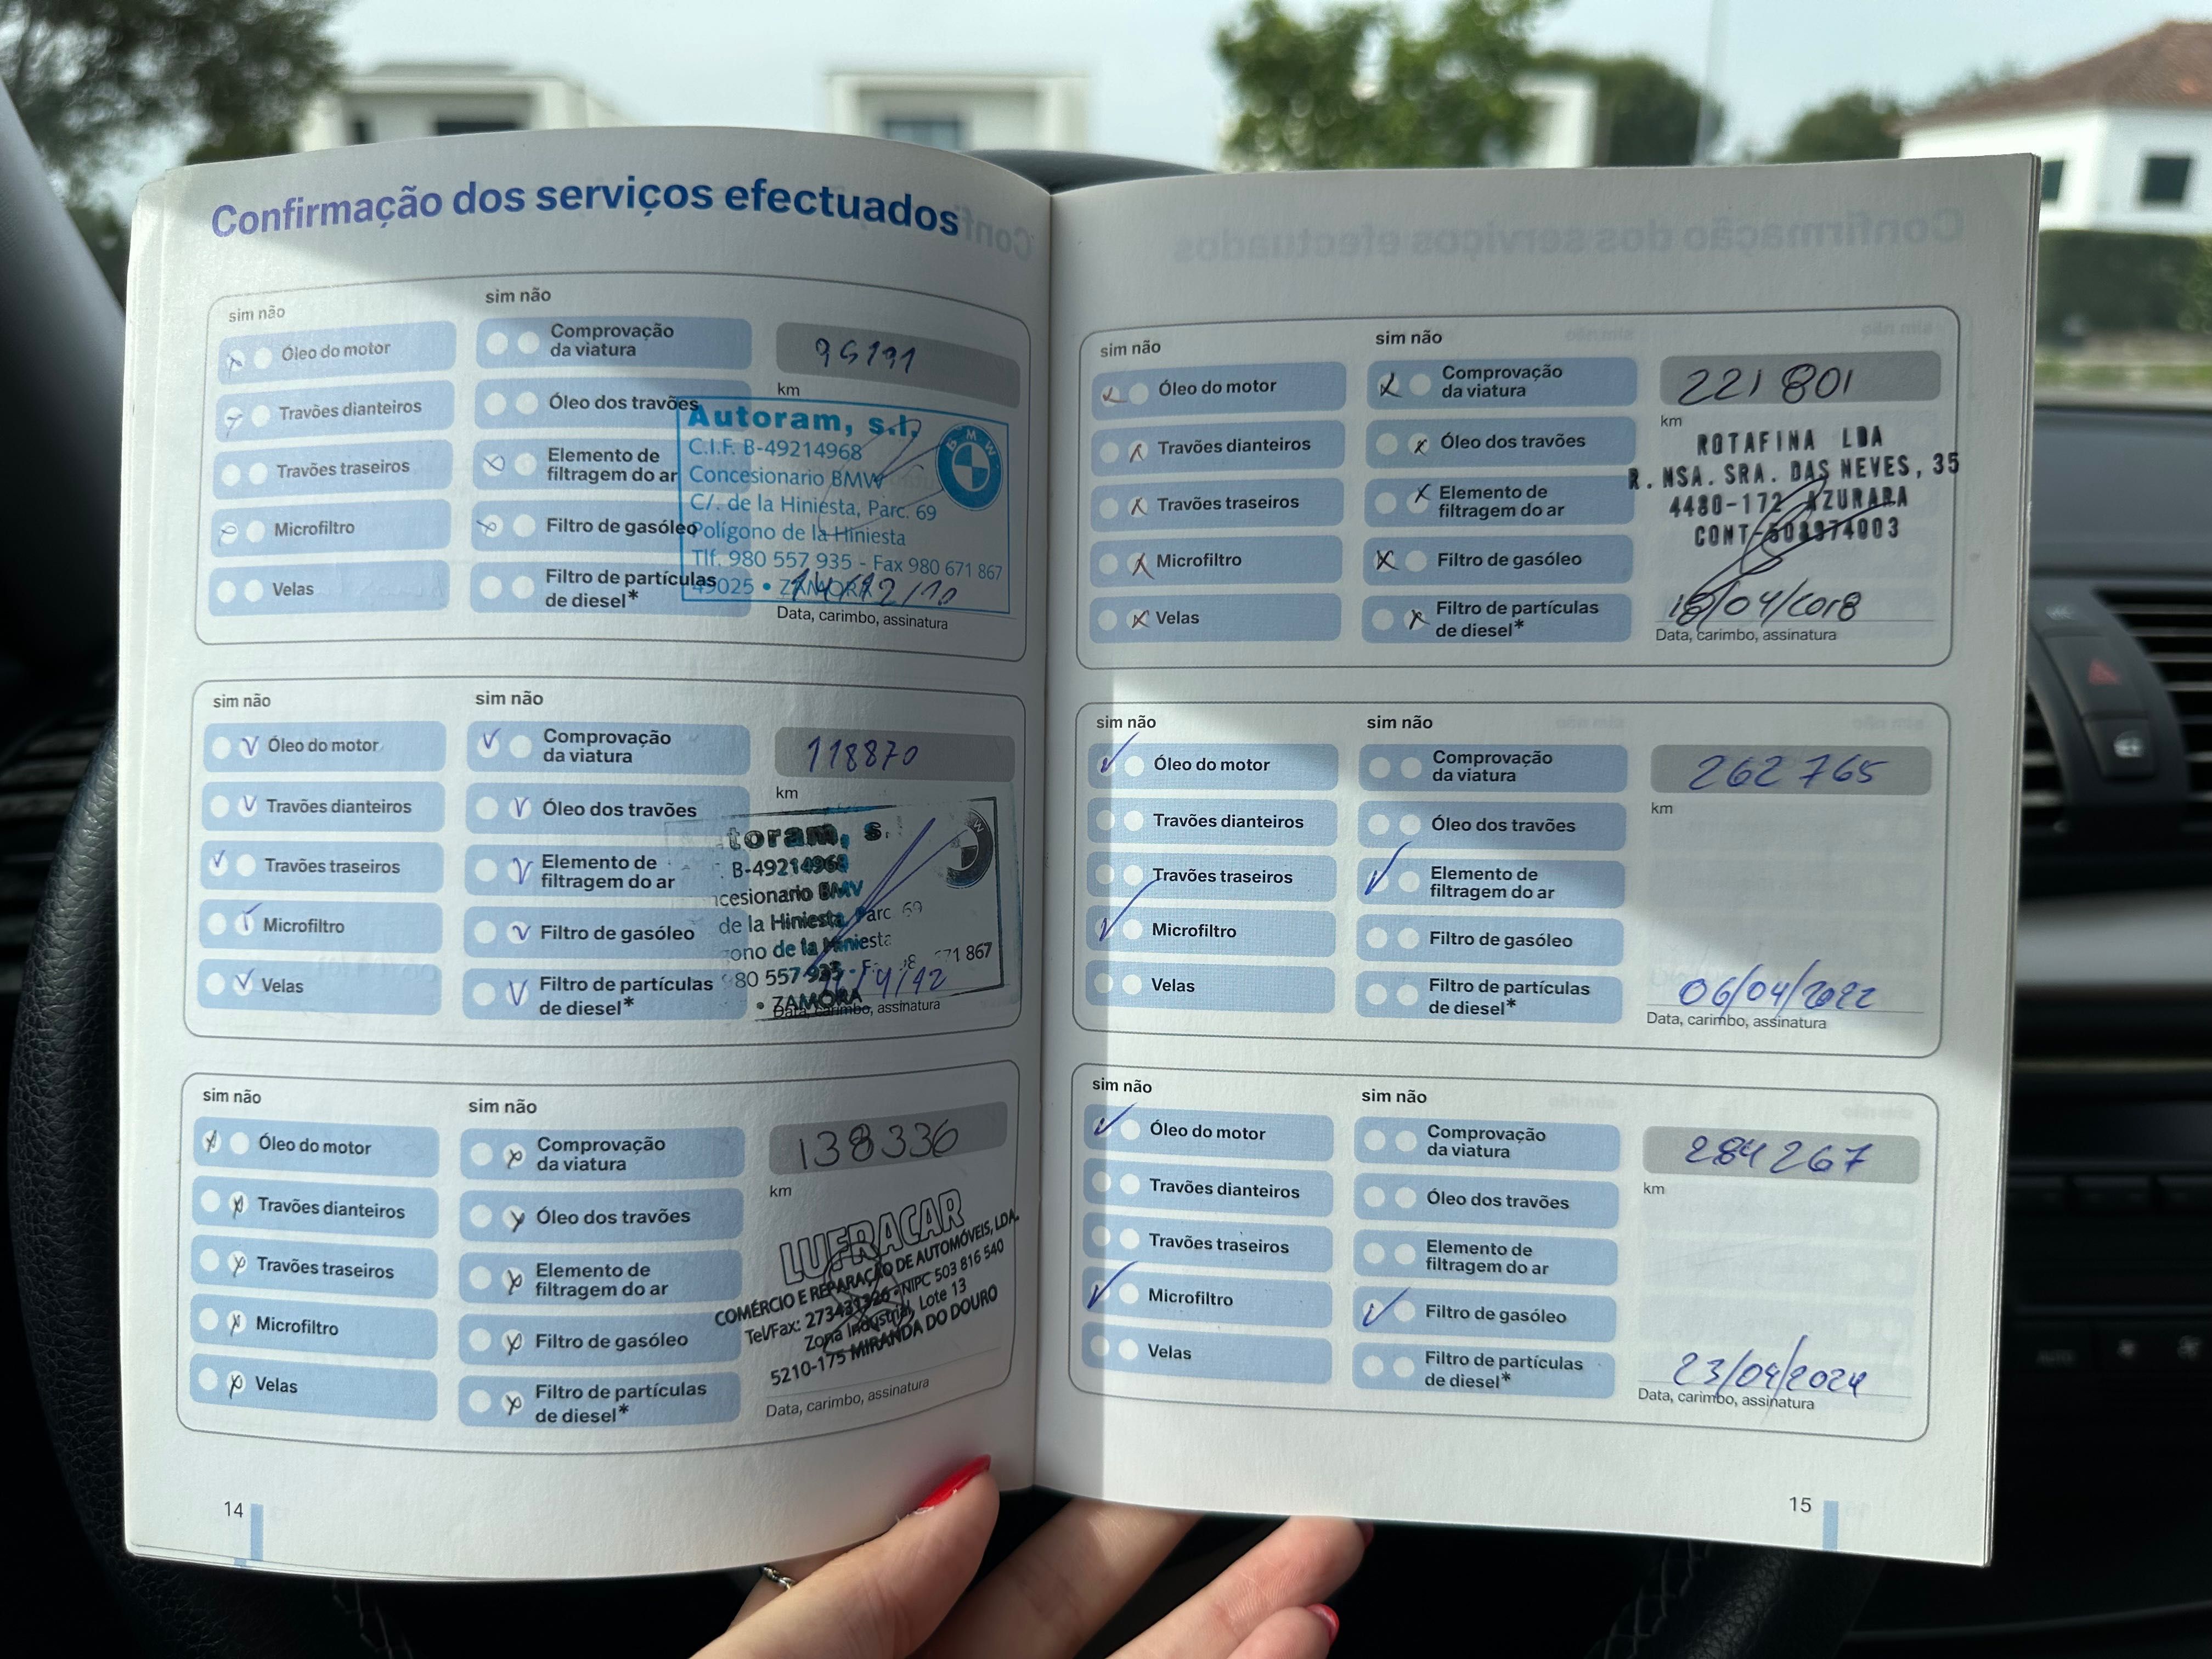 Confirmação dos serviços efectuados
sim não
sim não
Óleo do motor
Comprovação
da viatura
Travões dianteiros
Óleo dos travões
Travões traseiros
Elemento de
filtragem do ar
Microfiltro
Filtro de gasóleo
Velas
Filtro de partículas
de diesel*
km
Autoram, s.l.
BMW
C.I.F. B-49214968
Concesionario BMW
C/. de la Hiniesta, Parc. 69
Polígono de la Hiniesta
Tlf. 980 557 935 - Fax 980 671 867
49025 • ZAMORA
14/12/10
Data, carimbo, assinatura
sim não
sim não
Óleo do motor
Comprovação
da viatura
Travões dianteiros
Óleo dos travões
Travões traseiros
Elemento de
filtragem do ar
Microfiltro
Filtro de gasóleo
Velas
Filtro de partículas
de diesel*
118870
km
toram, s.
B-49214968
cesionario BMW
de la Hiniesta, Parc 69
ono de la Hiniesta
80 557 935 - F 71 867
• ZAMORA
Data, carimbo, assinatura
sim não
sim não
Óleo do motor
Comprovação
da viatura
Travões dianteiros
Óleo dos travões
Travões traseiros
Elemento de
filtragem do ar
Microfiltro
Filtro de gasóleo
Velas
Filtro de partículas
de diesel*
138336
km
LUFRACAR
COMÉRCIO E REPARAÇÃO DE AUTOMÓVEIS, LDA.
Tel/Fax: 273431326 - NIPC 503 816 540
Zona Industrial, Lote 13
5210-175 MIRANDA DO DOURO
Data, carimbo, assinatura
14
sim não
sim não
Óleo do motor
Comprovação
da viatura
Travões dianteiros
Óleo dos travões
Travões traseiros
Elemento de
filtragem do ar
Microfiltro
Filtro de gasóleo
Velas
Filtro de partículas
de diesel*
221 801
km
ROTAFINA LDA
R. NSA. SRA. DAS NEVES, 35
4480-172 AZURARA
CONT-508974003
Data, carimbo, assinatura
sim não
sim não
Óleo do motor
Comprovação
da viatura
Travões dianteiros
Óleo dos travões
Travões traseiros
Elemento de
filtragem do ar
Microfiltro
Filtro de gasóleo
Velas
Filtro de partículas
de diesel*
262 765
km
06/04/2022
Data, carimbo, assinatura
sim não
sim não
Óleo do motor
Comprovação
da viatura
Travões dianteiros
Óleo dos travões
Travões traseiros
Elemento de
filtragem do ar
Microfiltro
Filtro de gasóleo
Velas
Filtro de partículas
de diesel*
284 267
km
23/04/2024
Data, carimbo, assinatura
15
AUTO